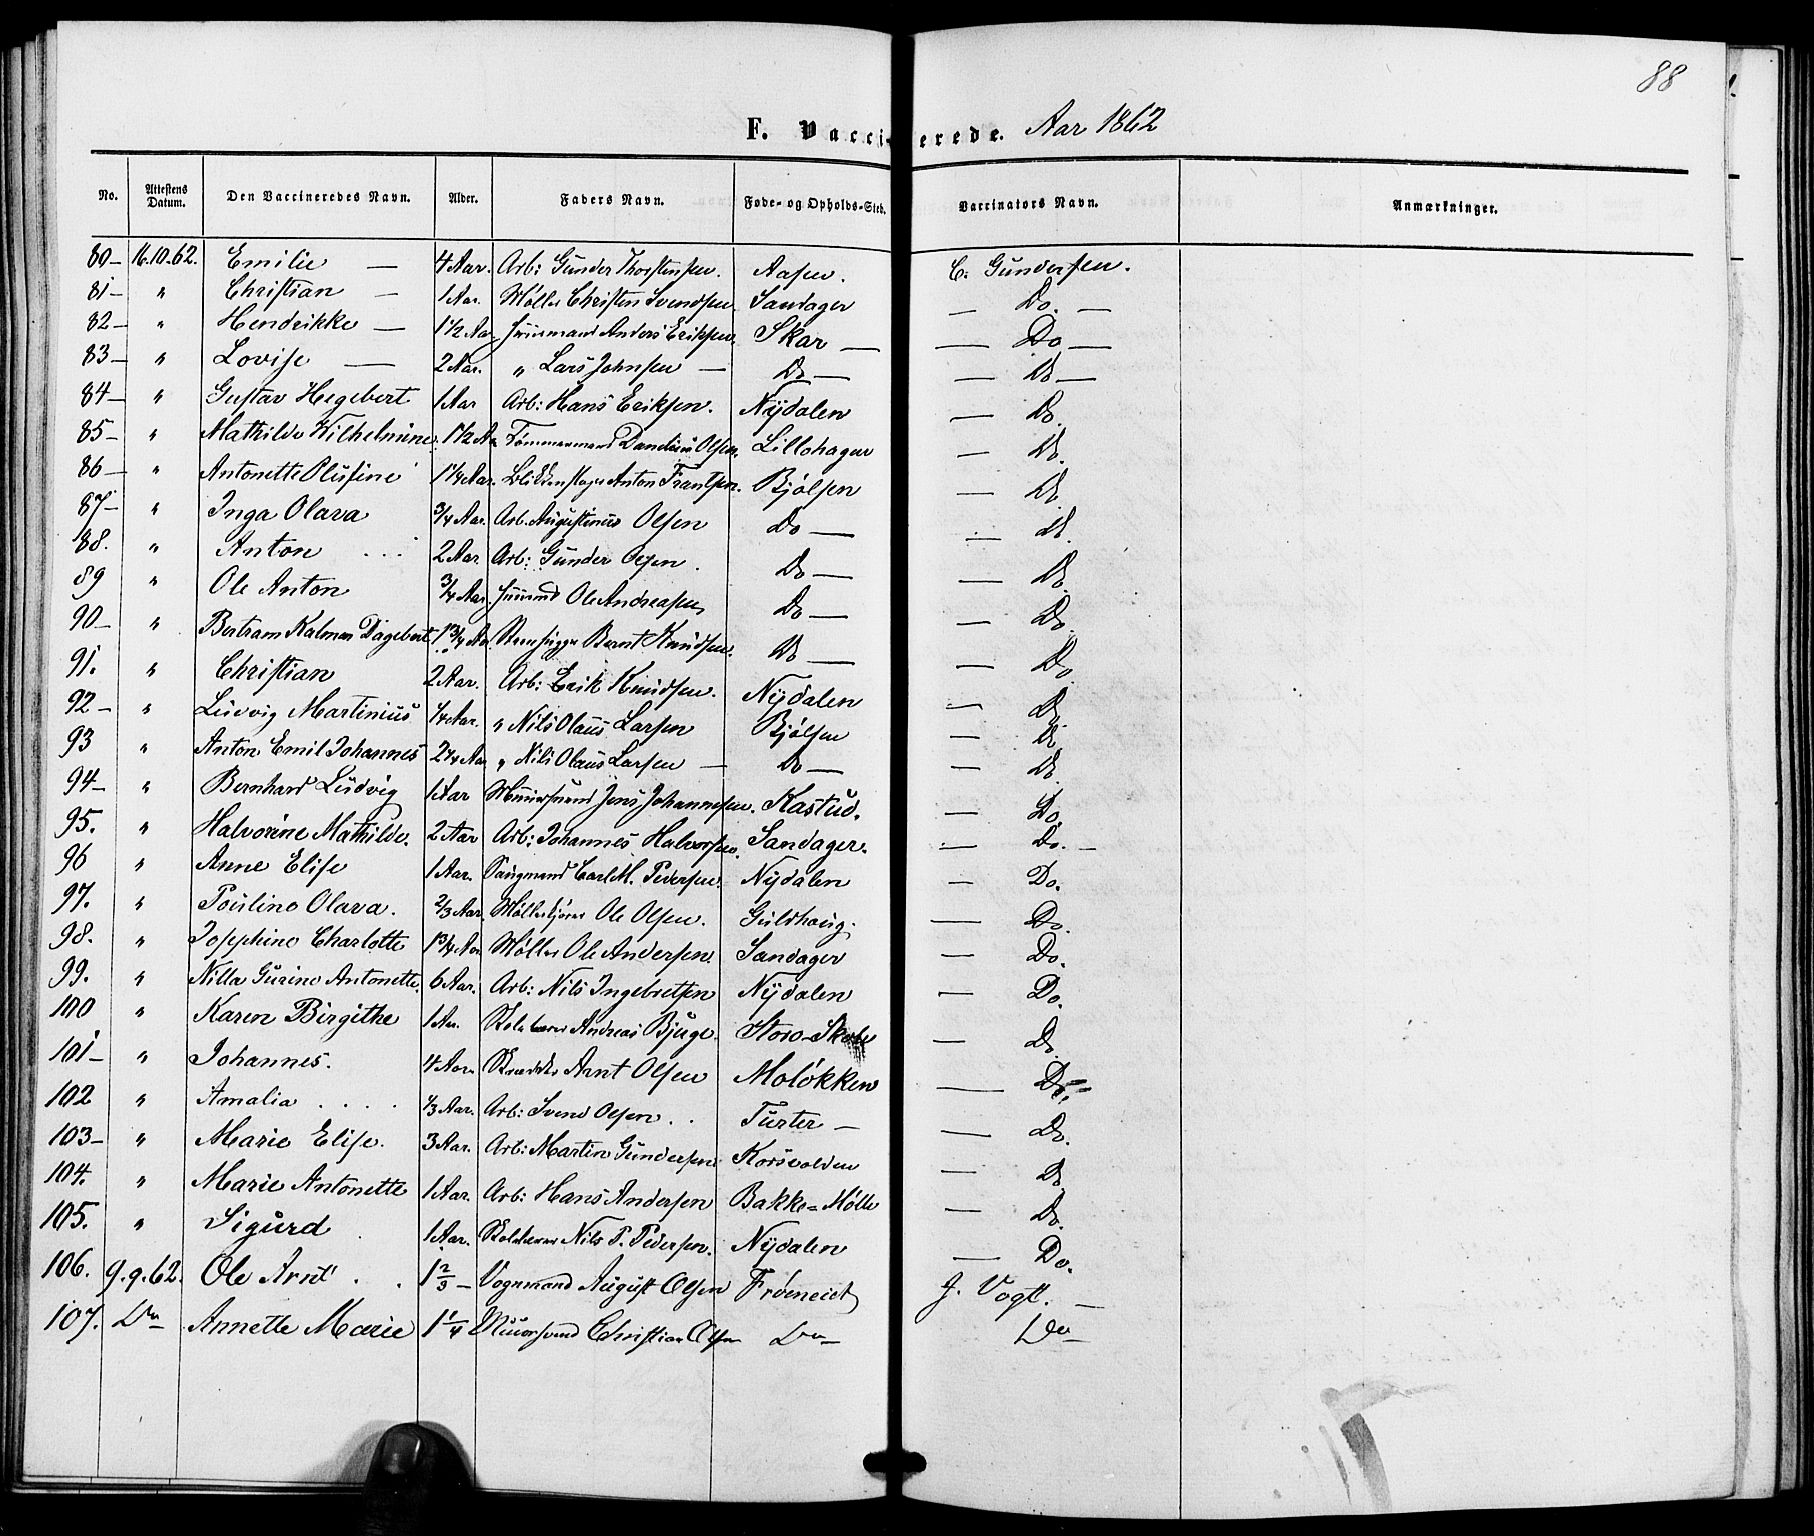 88
F. Vacci- erede. Aar 1862
No. Attestens Datum. Den Vaccineredes Navn. Alder. Faders Navn. Føde- og Opholds-Sted. Vaccinators Navn. Anmærkninger.
80 — 16.10.62. Emilie — 4 Aar. Arb: Gunder Thorstensen. Aasen. C. Gundersen.
81 — " Christian — 1 Aar. Møller Christen Svendsen Sandager — Do. —
82 — " Hendrikke — 1 1/2 Aar Huusmand Anders Eriksen. Skar — — Do —
83 — " Lovise — 2 Aar. " Lars Johnsen — Do — — Do —
84 — " Gustav Hegebert 1 Aar Arb: Hans Eriksen. Nydalen — Do.
85 — " Mathilde Wilhelmine 1 1/2 Aar Tømmermand Olsen. Lillohagen — Do.
86 — " Antonette Olufine 1 1/4 Aar. Anton Frantsen. Bjølsen — Do.
87 — " Inga Olava 3/4 Aar. Arb. Augustinus Olsen Do — — Do.
88. " Anton ... 2 Aar. Arb: Gunder Olsen. Do — — Do.
89 " Ole Anton 3/4 Aar. Huusmd Ole Andreasen Do — — Do.
90 — " Bertram Kalmen Dagebert 1 3/4 Aar Bernt Knudsen. Do — — Do
91. " Christian 2 Aar. Arb: Erik Knudsen. Nydalen — Do.
92 — " Ludvig Martinius 1/4 Aar. " Nils Olaus Larsen Bjølsen — Do
93 " Anton Emil Johannes 2 1/4 Aar " Nils Olaus Larsen — Do — — Do.
94 — " Bernhard Ludvig 1 Aar Muursvend Jens Johannesen. Kastud. — Do.
95. " Halvorine Mathilde. 2 Aar Arb: Johannes Halvorsen. Sandager. — Do. —
96 " Anne Elise 1 Aar. Saugmand Carl M. Pedersen. Nydalen — Do.
97. " Pouline Olava. 2/3 Aar. Møllerkjører Ole Olsen. Guldhaug. — Do.
98. " Josephine Charlotte 1 3/4 Aar Møller Ole Andersen Sandager — Do.
99. " Nilla Gurine Antonette. 6 Aar. Arb: Nils Ingebretsen Nydalen — Do.
100 " Karen Birgithe 1 Aar. Skolelærer Andreas Bjuge. Storo-Skole — Do.
101 — " Johannes. 4 Aar. Skrædder Arnt Olsen Moløkken — Do.
102 " Amalia .... 1/3 Aar. Arb: Svend Olsen .. Turter — — Do.
103 — " Marie Elise. 3 Aar. Arb: Martin Gundersen Korsvolden — Do.
104. " Marie Antonette 1 Aar. Arb: Hans Andersen Bakke=Mølle — Do.
105. " Sigurd 1 Aar. Skolelærer Nils P. Pedersen. Nydalen — Do.
106. 9.9.62. Ole Arnt .. 1 2/3 — Vognmand August Olsen Frøneiet J. Vogt. —
107. Do Annette Marie 1 1/4 Muursvend Christian Olsen Do Do